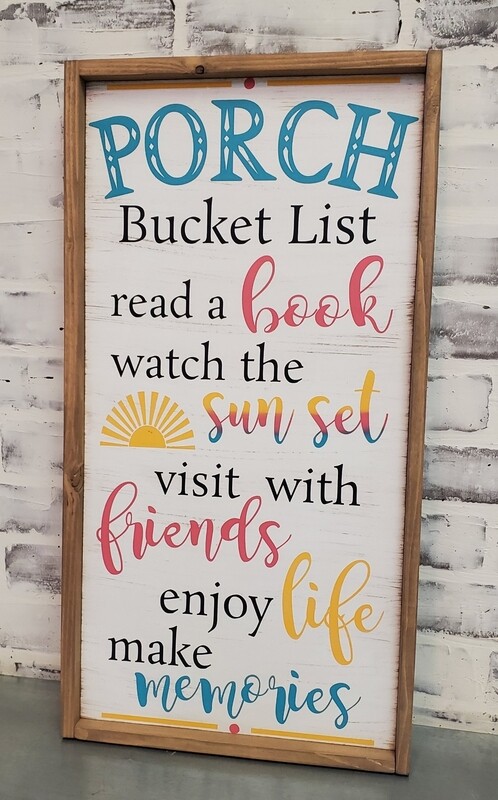 PORCH
Bucket List
read a book
watch the
sun set
visit with
friends
enjoy life
make
memories